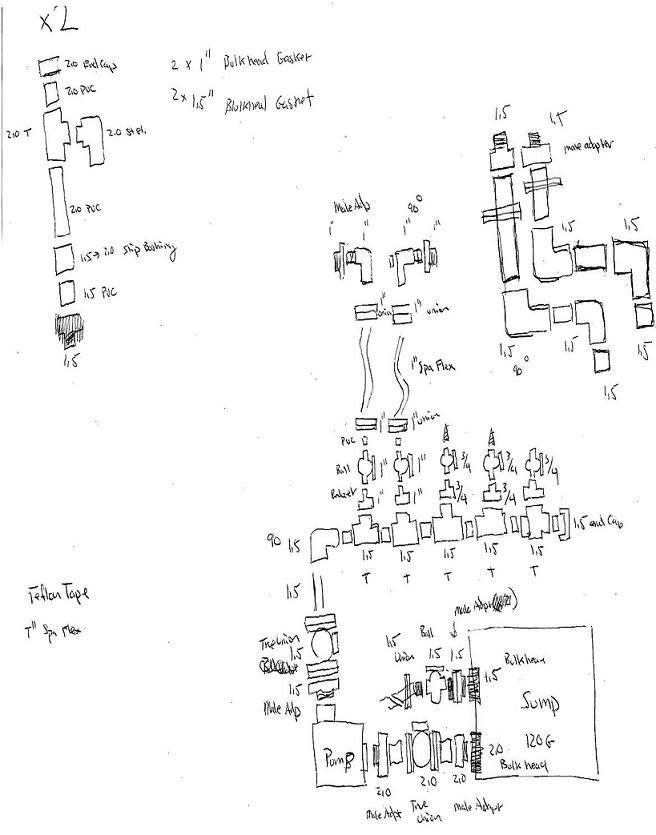 x2
2.0 End Caps
2.0 PVC
2.0 T
2.0 St el.
2.0 PVC
1.5→2.0 Slip Bushing
1.5 PVC
1.5
2 x 1" Bulkhead Gasket
2x 1.5" Blulkhead Gasket
1.5 1.5
male adapter
1.5 1.5
1.5 1.5 1.5
90°
1.5
Male Adp 90°
1" 1" 1" 1"
1" union 1" union
1" Spa Flex
1" 1" union
PVC
Ball 1" 1" 3/4 3/4 3/4
1" 1" 3/4 3/4
90 1.5
1.5 end Cap
1.5 1.5 1.5 1.5 1.5
T T T T T
1.5
Teflon Tape
1" Spa Flex
True Union
1.5
1.5
Male Adp
Male Adpt
1.5 Union
Ball 1.5
1.5
1.5
Bulkhead
Sump
120 G
2.0
Bulkhead
Pump
2.0 2.0 2.0
Male Adpt True Union Male Adpter